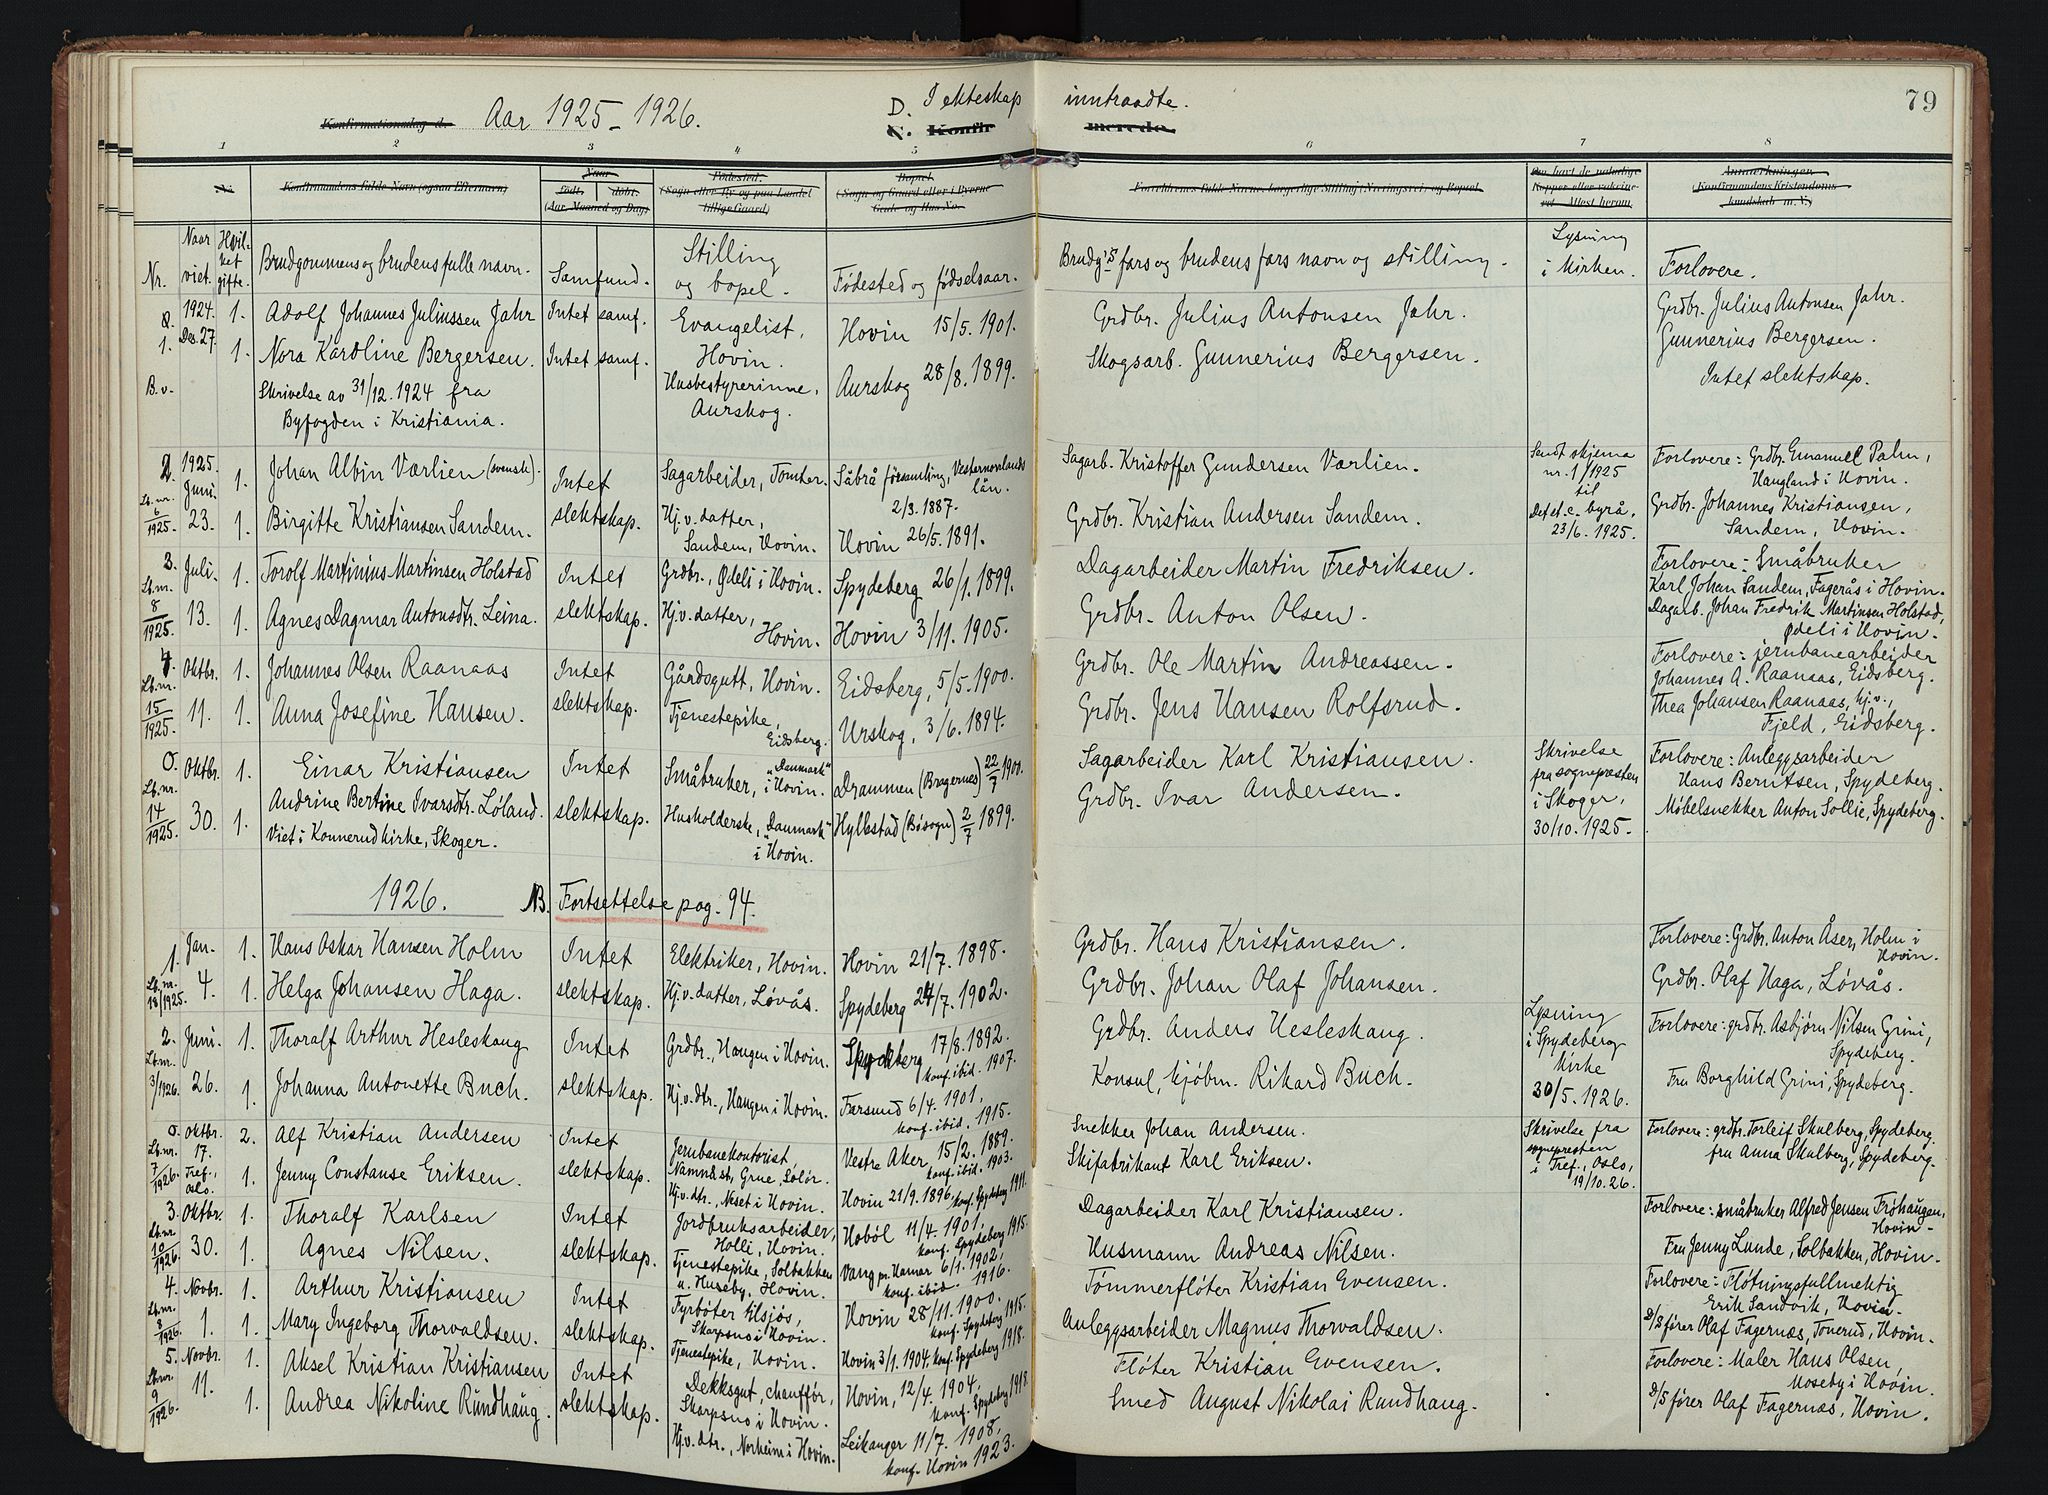 79
Konfirmationsdag d.
Aar 1925-1926.
D. I ekteskap inntraadte.
C. Konfirmerede.
1 2 3 4 5 6 7 8
No
Konfirmandens fulde Navn (ogsaa Efternavn)
Naar
født. døbt.
(Aar, Maaned og Dag)
Fødested.
(Sogn eller By og paa Landet
tillige Gaard)
Bopæl.
(Sogn og Gaard eller i Byerne
Gade og Hus No.
Forældrenes fulde Navne, borgerlige Stilling (Næringsvei) og Bopæl.
Om havt de naturlige
Kopper eller vaccine-
ret. Attest herom.
Anmærkninger
(Konfirmandens Kristendoms-
kundskab m. V.)
Nr.
Naar viet.
Hvilket gifte.
Brudgommens og brudens fulle navn.
Samfund.
Stilling og bopel.
Fødested og fødselsaar.
Brudg's fars og brudens fars navn og stilling.
Lysning i kirken.
Forlovere.
1. B.v.
1924. Des. 27.
1. Adolf Johannes Juliussen Jahr
Intet samf.
Evangelist, Hovin.
Hovin 15/5. 1901.
Grdbr. Julius Antonsen Jahr.
Grdbr. Julius Antonsen Jahr.
1. Nora Karoline Bergersen.
Intet samf.
Husbestyrerinne, Aurskog.
Aurskog 28/8. 1899.
Skogsarb. Gunnerius Bergersen.
Gunnerius Bergersen.
Intet slektskap.
Skrivelse av 31/12. 1924 fra
Byfogden i Kristiania.
2. Lb.nr. 6/1925.
1925. Juni. 23.
1. Johan Albin Værlien (svensk).
Intet slektskap.
Sagarbeider, Tomter.
Säbrå församling, Vesternorrlands län. 2/3. 1887.
Sagarb. Kristoffer Gundersen Værlien.
Sendt skjema nr. 1/1925 til Det st. c. byrå, 23/6. 1925.
Forlovere: Grdbr. Emanuel Palm,
Haugland i Hovin.
1. Birgitte Kristiansen Sandem.
Hj.v. datter, Sandem, Hovin.
Hovin 26/5. 1891.
Grdbr. Kristian Andersen Sandem.
Grdbr. Johannes Kristiansen,
Sandem, Hovin.
3. Lb.nr. 8/1925.
Juli. 13.
1. Torolf Martinius Martinsen Holstad
Intet slektskap.
Grdbr., Ødeli i Hovin.
Spydeberg 26/1. 1899.
Dagarbeider Martin Fredriksen.
Forlovere: Småbruker
Karl Johan Sandem, Fagerås i Hovin.
1. Agnes Dagmar Antonsdtr. Leina.
Hj.v. datter, Hovin.
Hovin 3/11. 1905.
Grdbr. Anton Olsen.
Dagarb. Johan Fredrik Martinsen Holstad,
Ødeli i Hovin.
4. Lb.nr. 15/1925.
Oktbr. 11.
1. Johannes Olsen Raanaas
Intet slektskap.
Gårdsgutt, Hovin.
Eidsberg, 5/5. 1900.
Grdbr. Ole Martin Andreassen.
Forlovere: jernbanearbeider
Johannes A. Raanaas, Eidsberg.
1. Anna Josefine Hansen.
Tjenestepike, Eidsberg.
Urskog, 3/6. 1894.
Grdbr. Jens Hansen Rolfsrud.
Thea Johansen Raanaas, hj.v.,
Fjeld, Eidsberg.
0. Lb.nr. 14/1925.
Oktbr. 30.
1. Einar Kristiansen
Intet slektskap.
Småbruker, "Danmark" i Hovin.
Drammen (Bragernes) 22/7 1900.
Sagarbeider Karl Kristiansen.
Skrivelse fra sognepresten i Skoger, 30/10. 1925.
Forlovere: Anleggsarbeider
Hans Berntsen, Spydeberg.
1. Andrine Bertine Ivarsdtr. Løland.
Husholderske, "Danmark" i Hovin.
Hylestad (Bøsogn) 2/7 1899.
Grdbr. Ivar Andersen.
Møbelsnekker Anton Sollie, Spydeberg.
Viet i Konnerud kirke, Skoger.
1926.
NB. Fortsettelse pag. 94.
1. Lb.nr. 18/1925.
Jan. 4.
1. Hans Oskar Hansen Holm
Intet slektskap.
Elektriker, Hovin.
Hovin 21/7. 1898.
Grdbr. Hans Kristiansen.
Forlovere: Grdbr. Anton Åser, Holm i Hovin.
1. Helga Johansen Haga.
Hj.v. datter, Løvås.
Spydeberg 24/7. 1902.
Grdbr. Johan Olaf Johansen.
Grdbr. Olaf Haga, Løvås.
2. Lb.nr. 3/1926.
Juni. 26.
1. Thoralf Arthur Hesleskaug
Intet slektskap.
Grdbr., Haugen i Hovin.
Spydeberg 17/8. 1892. konf. ibid. 1907.
Grdbr. Anders Hesleskaug.
Lysning i Spydeberg kirke 30/5. 1926.
Forlovere: grdbr. Asbjørn Nilsen Grini,
Spydeberg.
1. Johanna Antonette Buch.
Hj.v. dtr., Haugen i Hovin.
Farsund 6/4. 1901, konf. ibid. 1915.
Konsul, kjøbm. Rikard Buch.
Fru Borghild Grini, Spydeberg.
0. Lb.nr. 7/1926.
Oktbr. 17. Tref., Oslo.
2. Alf Kristian Andersen
Intet slektskap.
Jernbanekontorist, Namnå st., Grue, Solør.
Vestre Aker 15/2. 1889. konf. ibid. 1903.
Snekker Johan Andersen.
Skrivelse fra sognepresten i Tref., Oslo, 19/10. 26.
Forlovere: grdbr. Torleif Skulberg, Spydeberg.
1. Jenny Constanse Eriksen.
Hj.v. dtr., Neset i Hovin.
Hovin 21/9. 1896, konf. Spydeberg 1911.
Skifabrikant Karl Eriksen.
fru Anna Skulberg, Spydeberg.
3. Lb.nr. 10/1926.
Oktbr. 30.
1. Thoralf Karlsen
Intet slektskap.
Jordbruksarbeider, Holli, Hovin.
Hobøl 11/4. 1901, konf. Spydeberg 1915.
Dagarbeider Karl Kristiansen.
Forlovere: småbruker Alfred Jensen Frøhaugen,
Hovin.
1. Agnes Nilsen.
Tjenestepike, Solbakken u. Huseby, Hovin.
Vang pr. Hamar 6/1. 1902, konf. ibid. 1916.
Husmann Andreas Nilsen.
Fru Jenny Lunde, Solbakken, Hovin.
4. Lb.nr. 8/1926.
Novbr. 1.
1. Arthur Kristiansen
Intet slektskap.
Fyrbøter tilsjøs, Skarpsno i Hovin.
Hovin 28/11. 1900. konf. Spydeberg 1915.
Tømmerfløter Kristian Evensen.
Forlovere: Fløtningsfullmektig
Erik Sandvik, Hovin.
1. Mary Ingeborg Thorvaldsen.
Tjenestepike, Hovin.
Hovin 3/1. 1904. konf. Spydeberg 1918.
Anleggsarbeider Magnus Thorvaldsen.
D/S fører Olaf Fagernæs, Tonerud, Hovin.
5. Lb.nr. 9/1926.
Novbr. 11.
1. Aksel Kristian Kristiansen
Intet slektskap.
Dekksgut, chauffør, Skarpsno i Hovin.
Hovin, 12/4. 1904, konf. Spydeberg 1918.
Fløter Kristian Evensen.
Forlovere: Maler Hans Olsen,
Moseby i Hovin.
1. Andrea Nikoline Rundhaug.
Hj.v. dtr., Norheim i Hovin.
Leikanger 11/7. 1908, konf. Hovin 1923.
Smed August Nikolai Rundhaug.
D/S fører Olaf Fagernæs, Hovin.